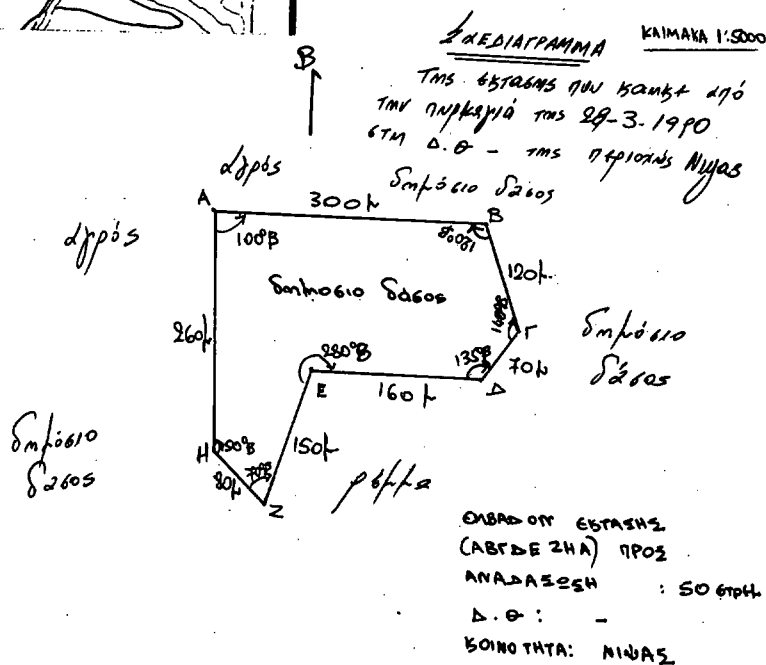 ΣΧΕΔΙΑΓΡΑΜΜΑ ΚΛΙΜΑΚΑ 1:5000
Της έκτασης που κάηκε από
την πυρκαγιά της 29-3-1990
στη Δ.Θ - της περιοχής
Β
αγρός
δημόσιο δάσος
Α 300μ Β
αγρός
100°Β 120°Β
120μ.
δημοσιο δάσος
260μ
160°Β Γ
δημόσιο
δάσος
280°Β 135°Β 70μ
Ε 160μ Δ
δημόσιο
δασος
Η 150°Β 150μ
80μ 70°Β
Ζ
ρέμμα
ΕΜΒΑΔΟΝ ΕΚΤΑΣΗΣ
(ΑΒΓΔΕΖΗΑ) ΠΡΟΣ
ΑΝΑΔΑΣΩΣΗ : 50 στρεμ.
Δ.Θ : -
ΚΟΙΝΟΤΗΤΑ: